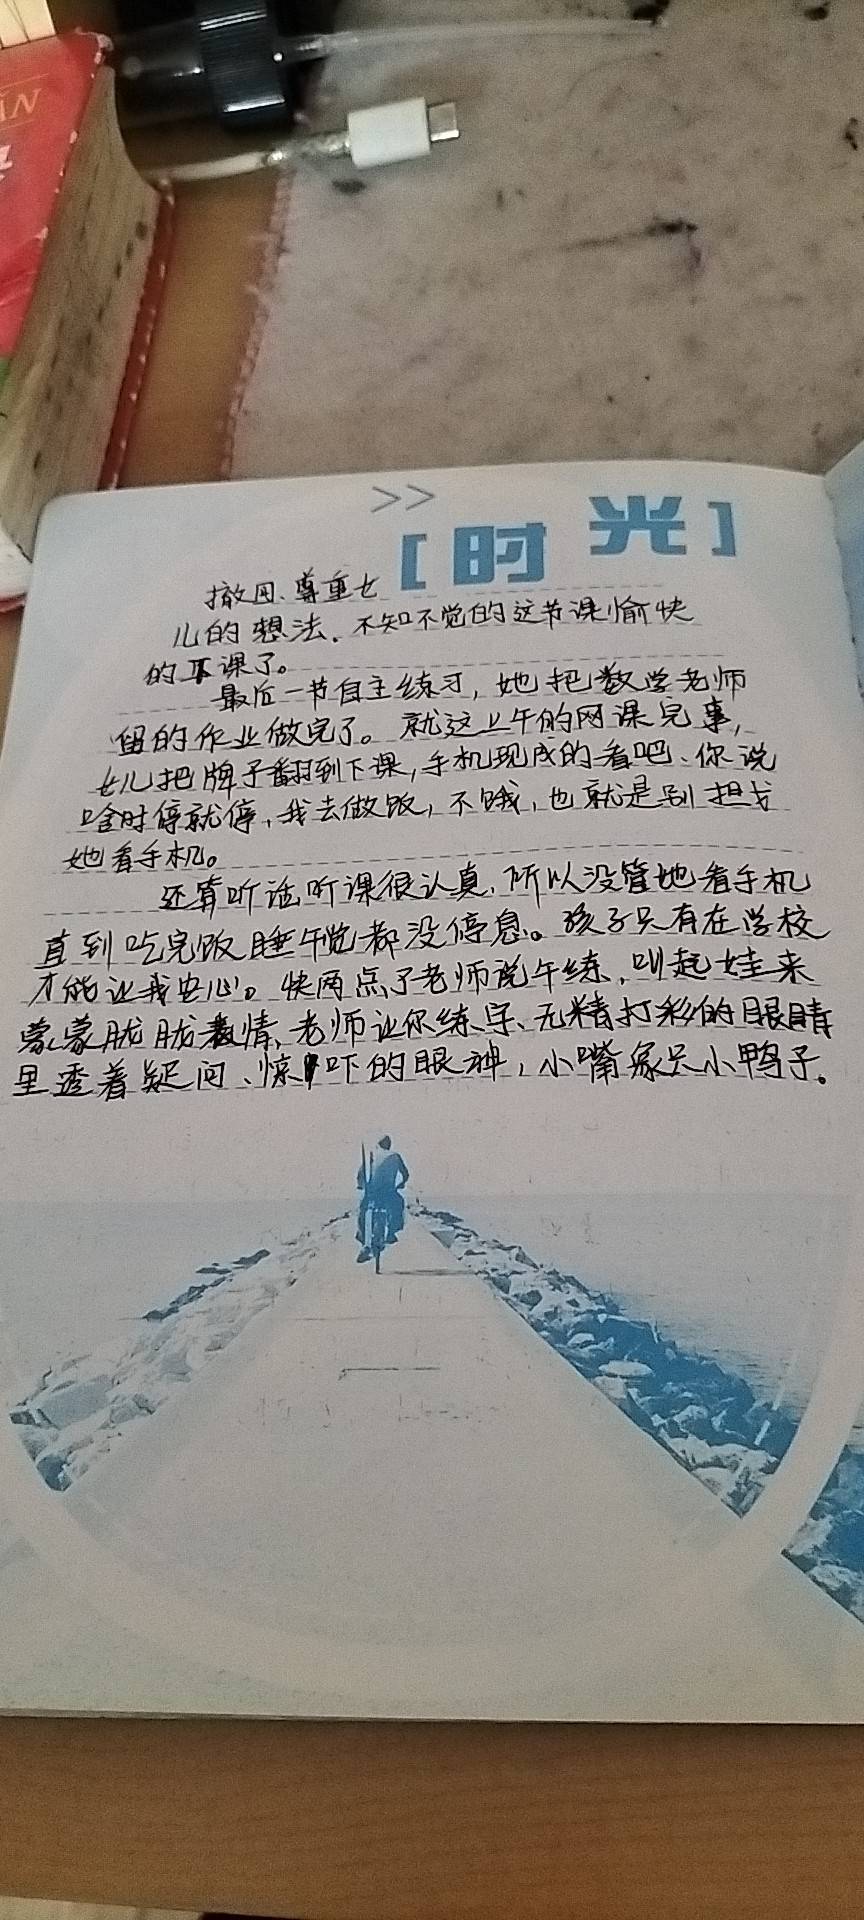 >>
[时光]
撤回、尊重女
儿的想法.不知不觉的这节课愉快
的下课了。
最后一节自主练习,她把数学老师
留的作业做完了。就这上午的网课完事,
女儿把牌子翻到下课,手机现成的看吧、你说
啥时停就停,我去做饭,不饿,也就是别担戈
她看手机。
还算听话听课很认真,所以没管她看手机
直到吃完饭睡午觉都没停息。孩子只有在学校
才能让我安心。快两点了老师说午练,叫起娃来
蒙蒙胧胧表情、老师让你练字、无精打彩的眼睛
里透着疑问、惊吓的眼神,小嘴象只小鸭子。